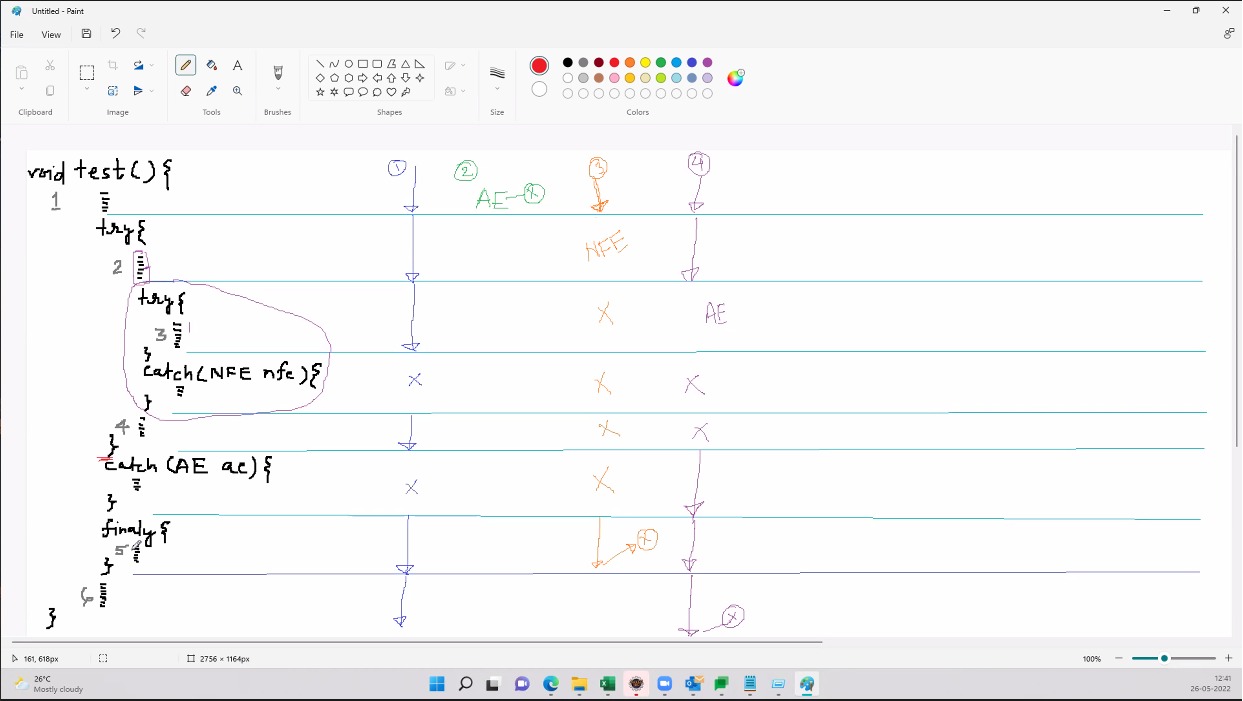 Untitled - Paint
File View
Clipboard Image Tools Brushes Shapes Size Colors
void test() {
1
try{
2
try{
3
}
catch(NFE nfe){
}
4
}
catch (AE ae){
}
finaly {
5
}
6
}
1 2 3 4
AE X
NFE
X AE
X X X
X X
X X
X
X
161, 618px 2756 × 1164px 100%
26°C
Mostly cloudy
12:41
26-05-2022